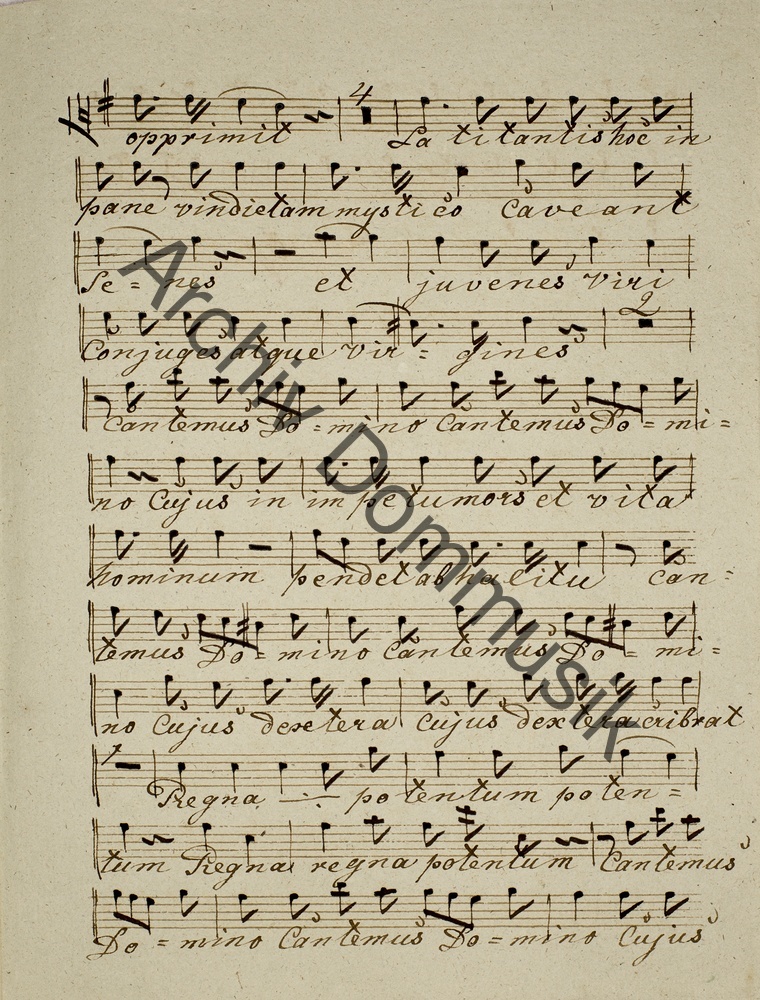 4
opprimit La titantis hoc in
pane vindictam mystico Caveant
Se = nes et juvenes Viri
2
Conjuges atque Vir = gines
Cantemus Do = mino Cantemus Do = mi =
no Cujus in impetu mors et vita
hominum pendet ab halitu can =
temus Do = mino Cantemus Do = mi =
no Cujus dextera Cujus dextera cribrat
1
Regna potentum poten =
tum Regna regna potentum Cantemus
Do = mino Cantemus Do = mino Cujus
Archiv Dommusik